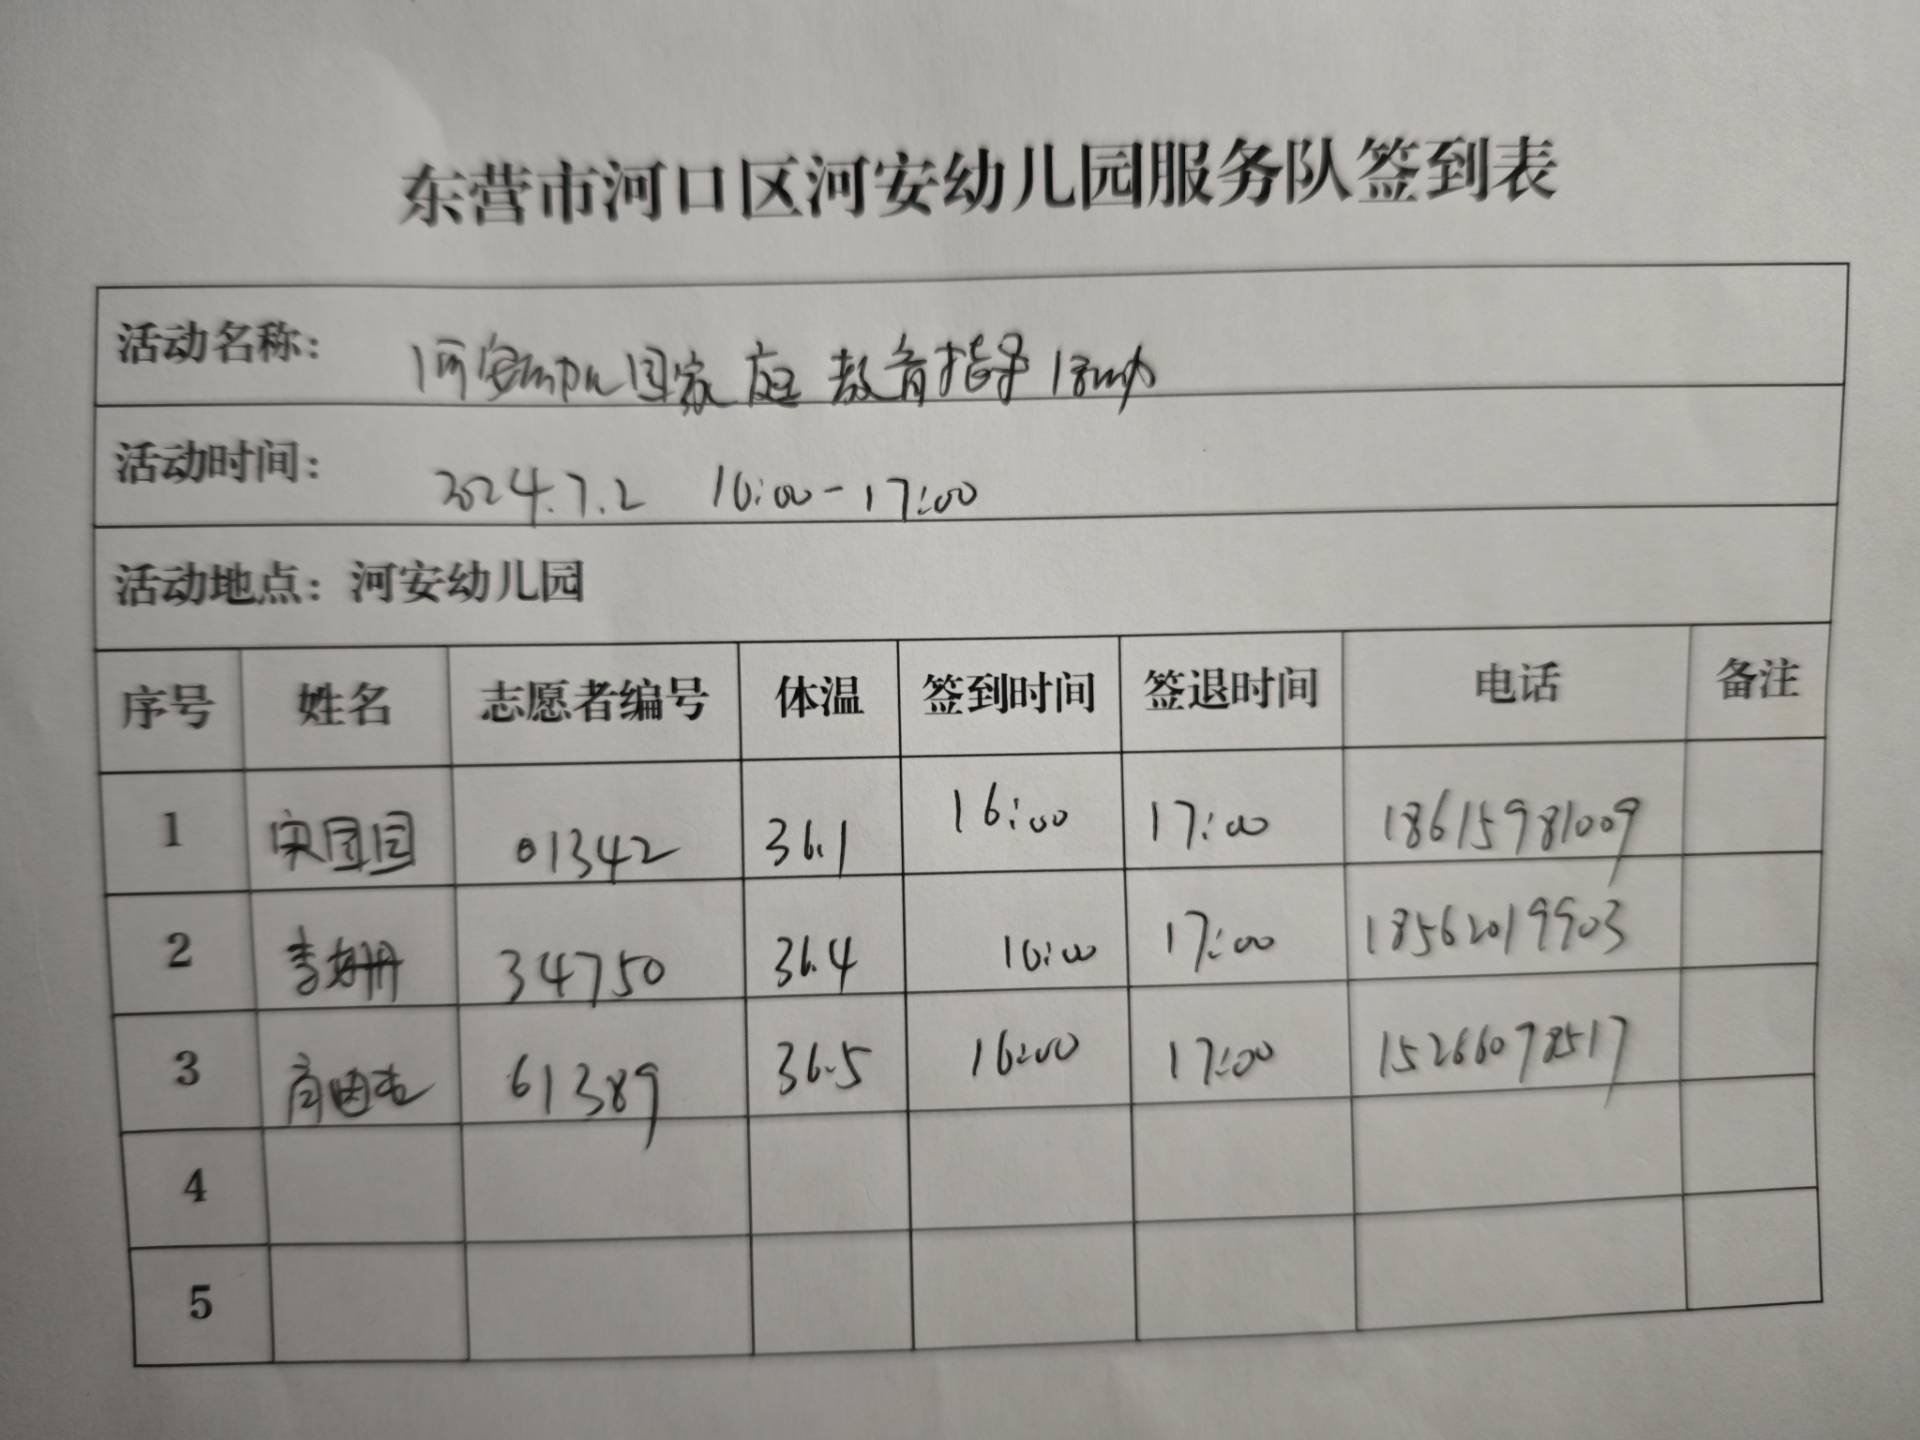 东营市河口区河安幼儿园服务队签到表
活动名称: 河安幼儿园家庭教育指导活动
活动时间: 2024.7.2 16:00-17:00
活动地点: 河安幼儿园
序号 姓名 志愿者编号 体温 签到时间 签退时间 电话 备注
1 宋团园 01342 36.1 16:00 17:00 18615981009
2 李姗姗 34750 36.4 16:00 17:00 18562019903
3 61389 36.5 16:00 17:00 15266078517
4
5